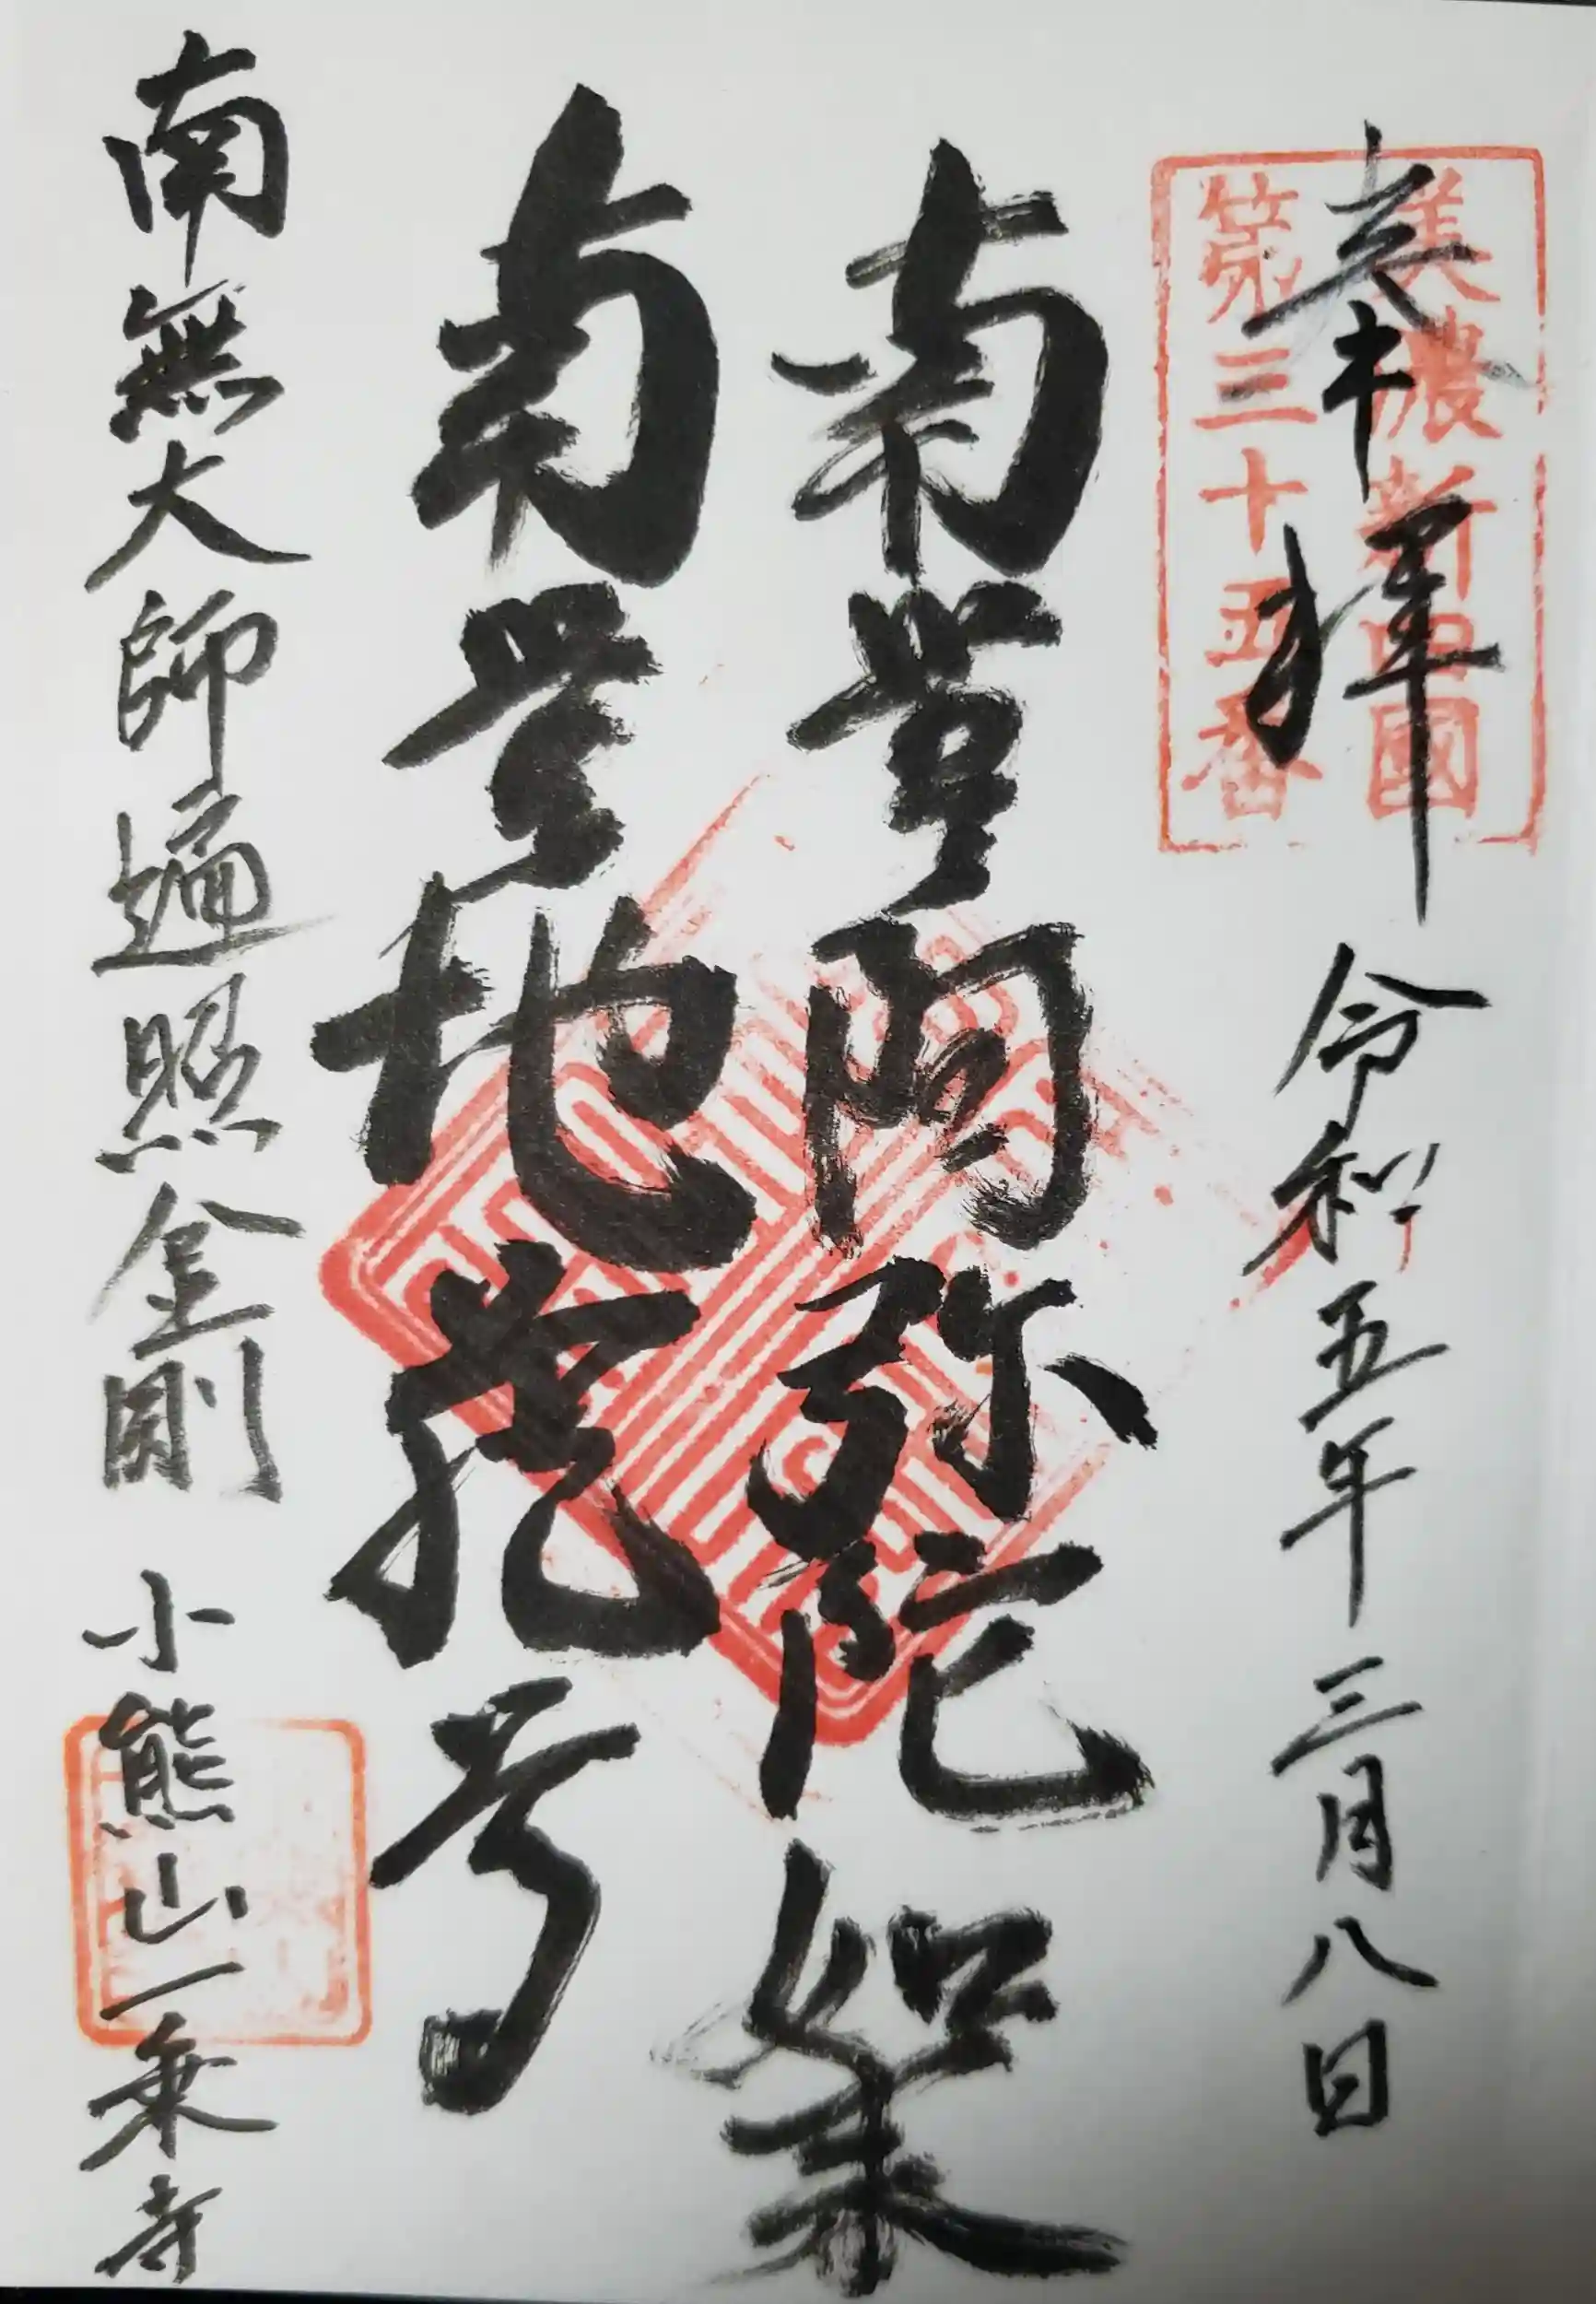 奉拝 令和五年三月八日
美濃新四國
第三十五番
南無阿弥陀如来
南無地蔵尊
南無大師遍照金剛 小熊山一乗寺